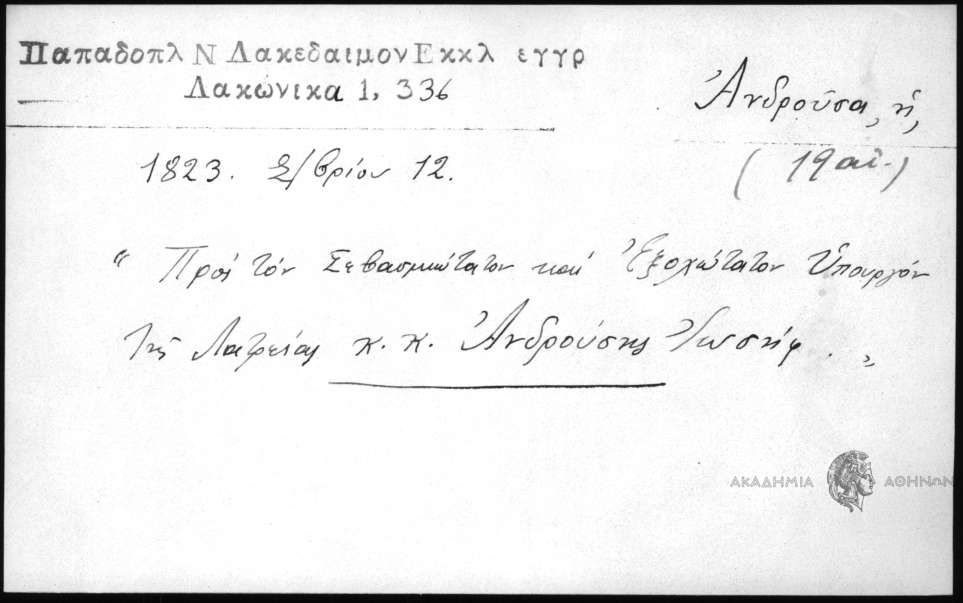 Παπαδοπλ Ν Λακεδαιμον Εκκλ εγγρ
Λακωνικα 1, 336
Ἀνδροῦσα, ἡ,
(19 αἰ.)
1823. Σ/βρίου 12.
“ Πρός τόν Σεβασμιώτατον καί Ἐξοχώτατον Ὑπουργόν
τῆς Λατρείας κ. κ. Ἀνδρούσης Ἰωσήφ. „
ΑΚΑΔΗΜΙΑ ΑΘΗΝΩΝ